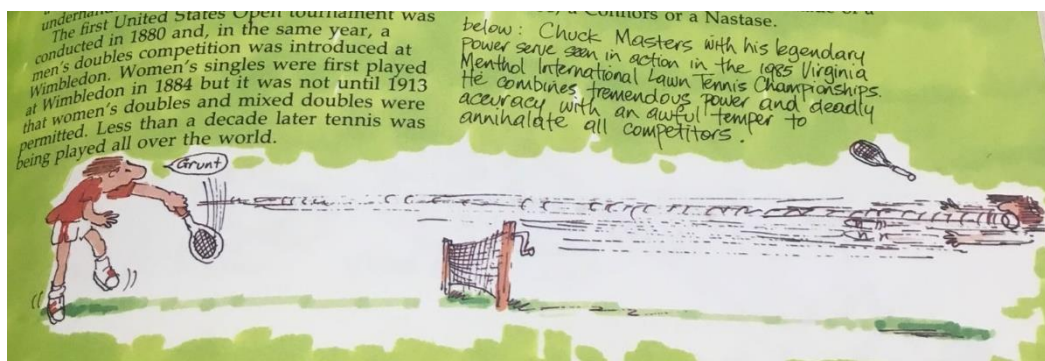 underhand
The first United States Open tournament was
conducted in 1880 and, in the same year, a
men's doubles competition was introduced at
Wimbledon. Women's singles were first played
at Wimbledon in 1884 but it was not until 1913
that women's doubles and mixed doubles were
permitted. Less than a decade later tennis was
being played all over the world.
a Connors or a Nastase.
below: Chuck Masters with his legendary
power serve seen in action in the 1985 Virginia
Menthol International Lawn Tennis Championships.
He combines tremendous power and deadly
accuracy with an awful temper to
annihalate all competitors.
Grunt